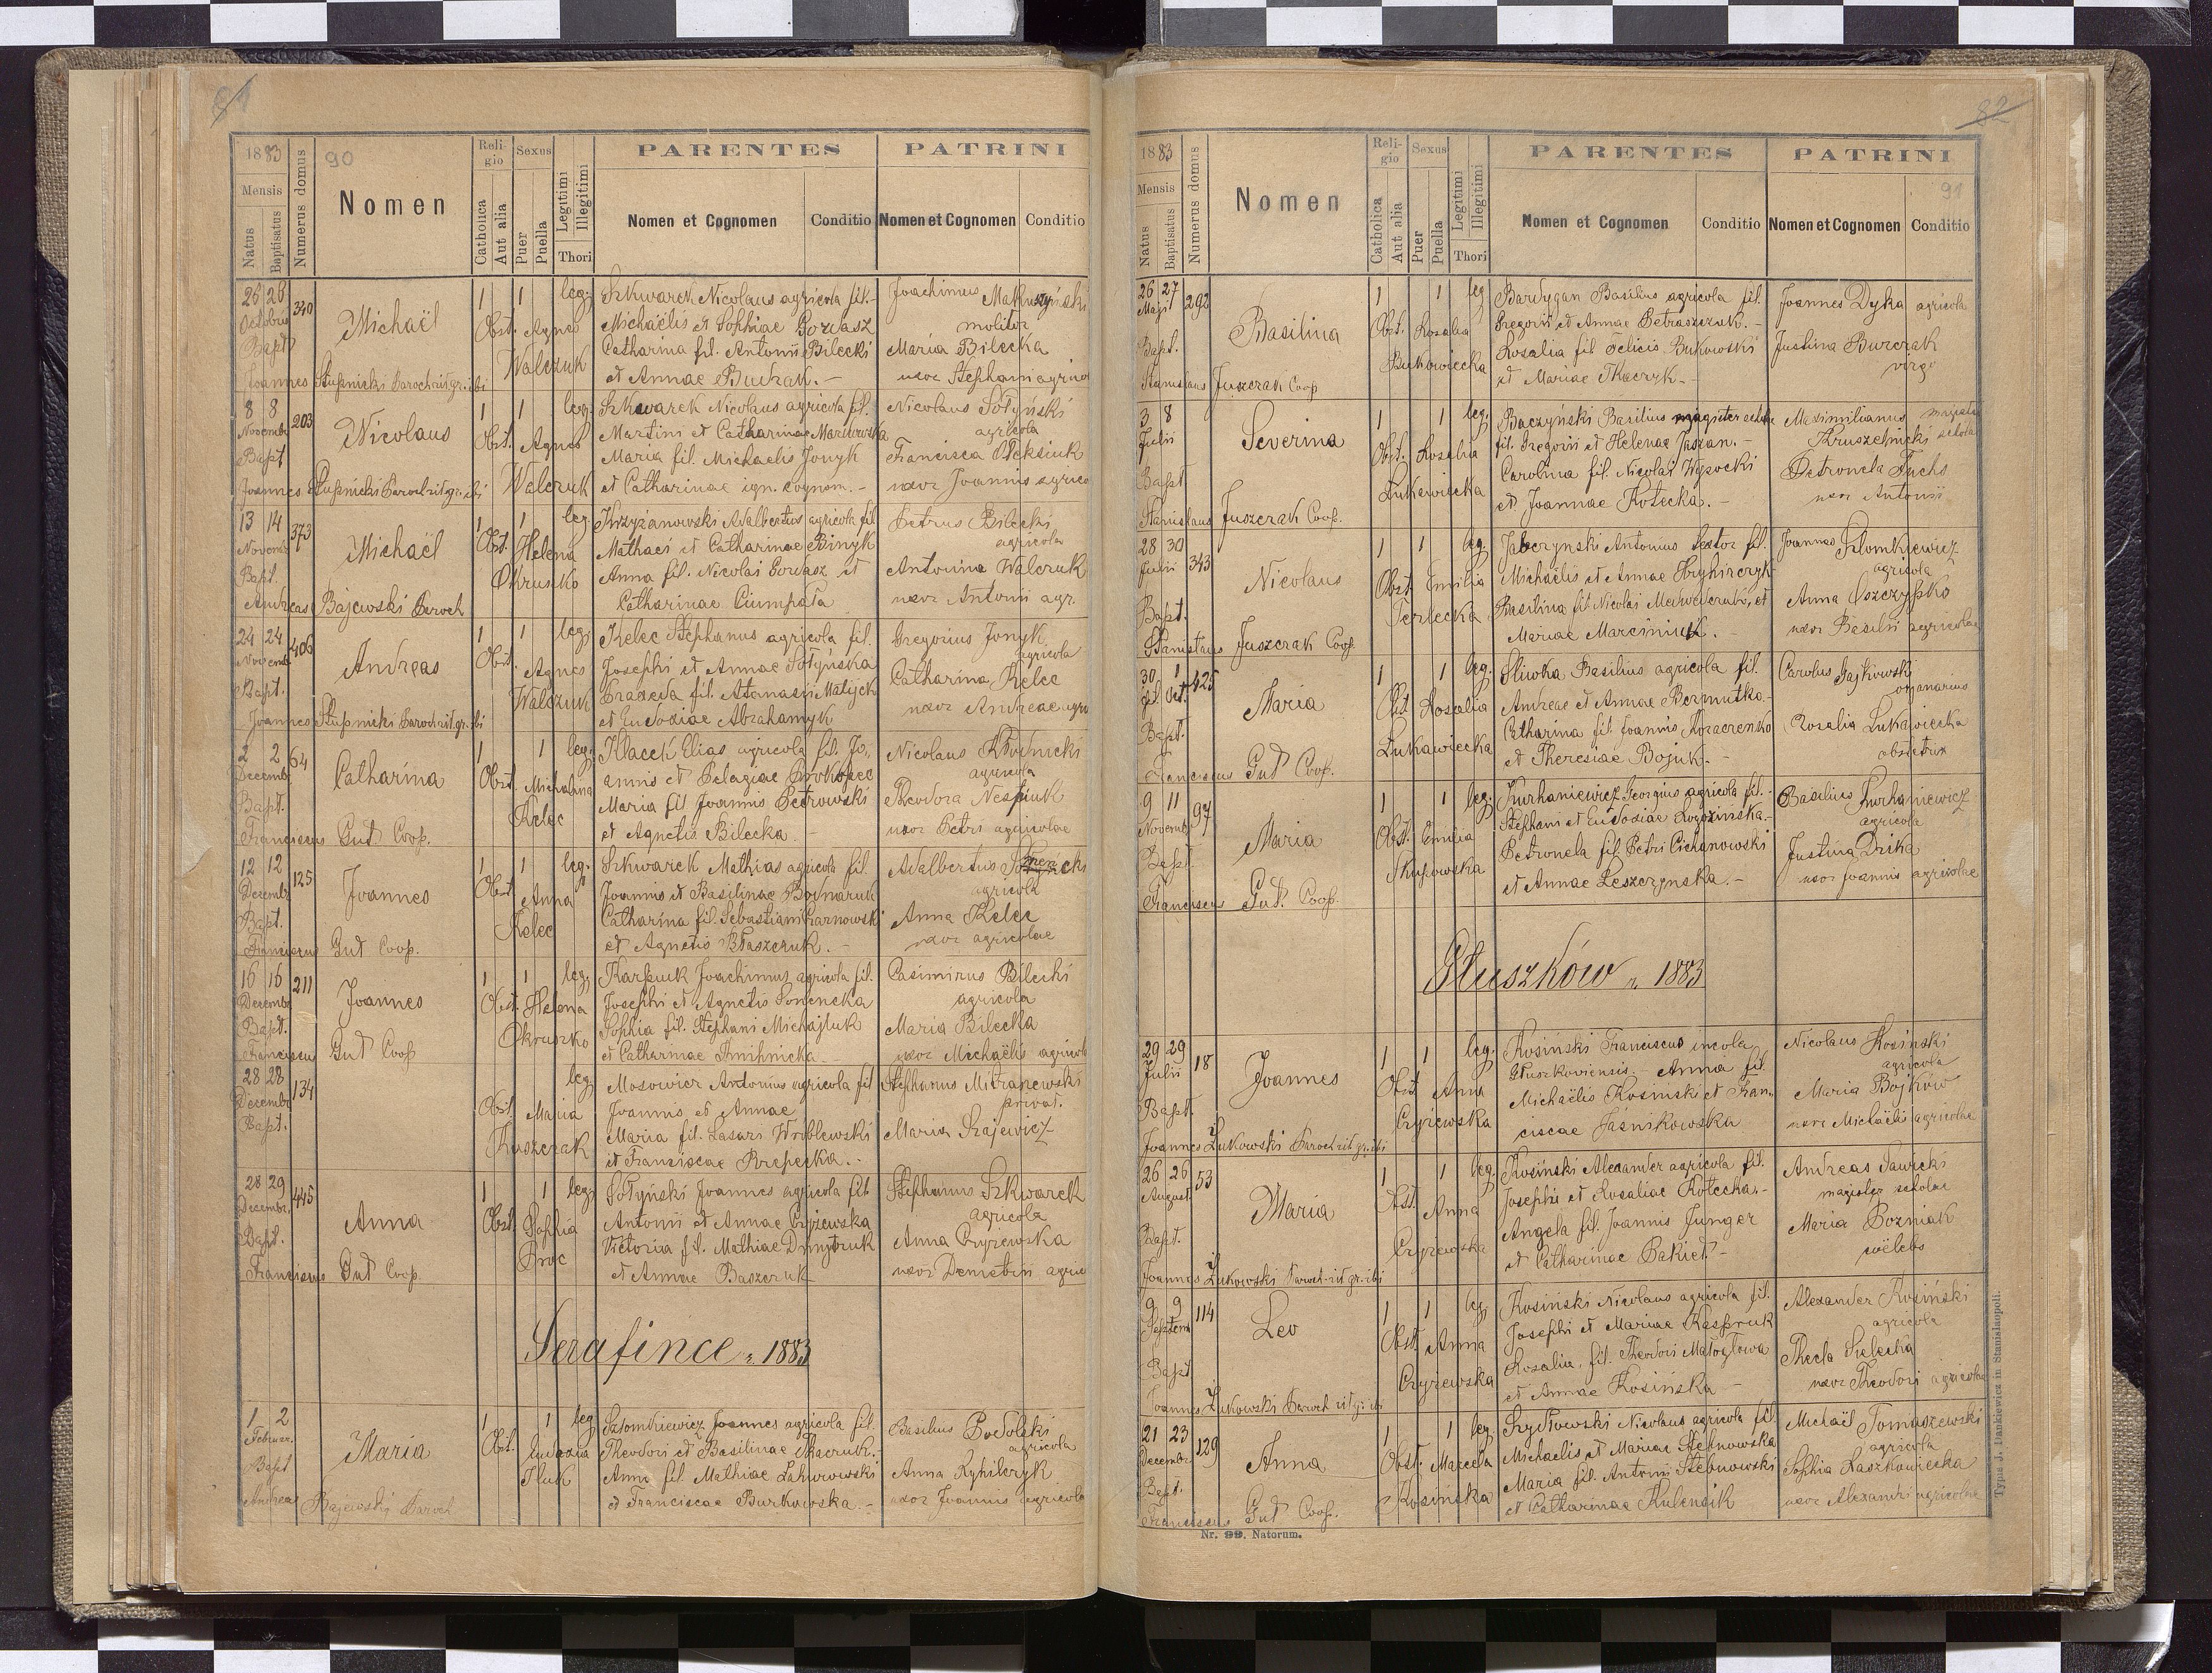 81
1883
90
Mensis
Natus
Baptisatus
Numerus domus
Nomen
Religio
Catholica
Aut alia
Sexus
Puer
Puella
Legitimi
Illegitimi
Thori
PARENTES
Nomen et Cognomen
Conditio
PATRINI
Nomen et Cognomen
Conditio
26 26 340 Michaël 1 1 leg. Szkwarek Nicolaus agricola fil. Joachimus
Octobris Obst. Agnes Michaëlis et Sophiae Gowasz molitor
Bapt. Walczuk Catharina fil. Antonii Bilecki Maria Bilecka
Joannes Stupnicki Paroch rit. gr. ibi et Annae Budzak.- uxor Stephani
8 8 203 Nicolaus 1 1 leg. Szkwarek Nicolaus agricola fil. Nicolaus Sołyński
Novembr. Obst. Agnes Martini et Catharinae agricola
Bapt. Walczuk Maria fil. Michaelis Jonyk Francisca Oleksiuk
Joannes Stupnicki Paroch rit. gr. ibi et Catharinae ign. cognom.- uxor Joannis
13 14 373 Michaël 1 1 leg. Krzyżanowski Adalbertus agricola fil. Petrus Bilecki
Novemb. Obst. Helena Mathaei et Catharinae Binyk agricola
Bapt. Okruszko Anna fil. Nicolai Gowasz et Antonina Walczuk
Andreas Bajewski Paroch Catharinae Ciumpała uxor Antonii agr.
24 24 406 Andreas 1 1 leg. Kelec Stephanus agricola fil. Gregorius Jonyk
Novemb. Obst. Agnes Josephi et Annae Sołyńska agricola
Bapt. Walczuk Praxeda fil. Atanasii Matijek Catharina Kelec
Joannes Stupnicki Paroch rit. gr. ibi et Eudoxiae Abrahamyk uxor Andreae
2 2 64 Catharina 1 1 leg. Hlacek Elias agricola fil. Jo-
Decembr. Obst. Michalina annis et Pelagiae Prokopec Nicolaus Kłodnicki agricola
Bapt. Kelec Maria fil. Joannis Petrowski Theodora Nespiuk
Franciscus Gut Coop. et Agnetis Bilecka.- uxor Petri agricolae
12 12 125 Joannes 1 1 leg. Szkwarek Mathias agricola fil. Adalbertus
Decembr. Obst. Anna Joannis et Basilinae Bojnaruk agricola
Bapt. Kelec Catharina fil. Sebastiani Czarnowski Anna Kelec
Franciscus Gut Coop. et Agnetis Błaszczuk.- uxor agricolae
16 16 211 Joannes 1 1 leg. Karpiuk Joachimus agricola fil. Casimirus Bilecki
Decembr. Obst. Helena Josephi et Agnetis agricola
Bapt. Okruszko Sophia fil. Stephani Michajluk Maria Bilecka
Franciscus Gut Coop et Catharinae uxor Michaëlis
28 28 134 leg. Mosowicz Antonius agricola fil. Stephanus
Decembr. Obst. Maria Joannis et Annae privat.
Bapt. Kuszczak Maria fil. Lasari Wróblewski Maria
et Franciscae Przepecka.-
28 29 445 Anna 1 1 leg. Sołyński Joannes agricola fil. Stephanus Szkwarek
Decembr. Obst. Sophia Antonii et Annae Czyżewska agricola
Bapt. Proc Victoria fil. Mathiae Dmytruk Anna Czyżewska
Franciscus Gut Coop. et Annae Baszczuk uxor Demetrii
Serafince r. 1883
1 2 Maria 1 1 leg. Szłomkiewicz Joannes agricola fil. Basilius Podolski
Februar. Obst. Eudoxia Theodori et Basilinae Tkaczuk.- agricola
Bapt. Anna fil. Mathiae Anna
Andreas Bajewski Paroch. et Franciscae Burkowska.- uxor Joannis agricola
82
1883
91
Mensis
Natus
Baptisatus
Numerus domus
Nomen
Religio
Catholica
Aut alia
Sexus
Puer
Puella
Legitimi
Illegitimi
Thori
PARENTES
Nomen et Cognomen
Conditio
PATRINI
Nomen et Cognomen
Conditio
26 27 292 Basilina 1 1 leg. Bardygan Basilius agricola fil. Joannes Dyka agricola
Maji Obst. Rosalia Gregorii et Annae Petraszczuk.-
Bapt. Rosalia fil. Felicis Bukowski Justina Burczak
Stanislaus Juszczak Coop et Mariae Tkaczyk.- virgo
3 8 Severina 1 1 leg. Baczyński Basilius magister scholae Maximilianus
Julii Obst. Rosalia fil. Gregorii et Helenae Jaszan.- Kruszelnicki
Bapt. Łukawiecka Carolina fil. Nicolai Wysocki Petronela Fuchs
Stanislaus Juszczak Coop. et Joannae Kotecka.- uxor Antonii
28 30 343 Nicolaus 1 1 leg. Jabczynski Antonius fil. Joannes Szłomkiewicz
Julii Obst. Emilia Michaëlis et Annae Hryhirczyk agricola
Bapt. Terlecka Basilina fil. Nicolai et Anna Oszczypko
Stanislaus Juszczak Coop. Mariae Marciniuk.- uxor Basilii agricolae
30 1 425 Maria 1 1 leg. Śliwka Basilius agricola fil. Carolus Gajkowski
Obst. Rosalia Andreae et Annae organarius
Bapt. Łukawiecka Catharina fil. Joannis Kozaczenko Rosalia Łukawiecka
Franciscus Gut Coop. et Theresiae Bojuk.- obstetrix
9 11 97 Maria 1 1 leg. Kurhaniewicz Georgius agricola fil.- Basilius Kurhaniewicz
Novemb. Obst. Emilia Stephani et Eudoxiae agricola
Bapt. Skupowska Petronela fil. Petri Cichanowski Justina Dzika
Franciscus Gut. Coop. et Annae Leszczynska.- uxor Joannis agricolae
Głuszków r. 1883
29 29 18 Joannes 1 1 leg. Kosiński Franciscus incola Nicolaus Kosinski
Julii Obst. Anna Głuszkoviensis.- Annia fil. agricola
Bapt. Czyżewska Michaëlis Kosinski et Fran- Maria Bojków
Joannes Łukowski Paroch rit. gr. ibi ciscae Jaśnikowska uxor Michaëlis agricolae
26 26 53 Maria 1 1 leg. Kosiński Alexander agricola fil. Andreas Sawicki
August Obst. Anna Josephi et Rosaliae Kotecka.- magister scholae
Bapt. Czyżewska Angela fil. Joannis Junger Maria Pozniak
Joannes Łukowski Paroch rit. gr. ibi et Catharinae Pakiet.- coëlebs
9 9 114 Leo 1 1 leg. Kosiński Nicolaus agricola fil. Alexander Kosiński
Septem. Obst. Anna Josephi et Mariae Kaspruk agricola
Bapt. Czyżewska Rosalia, fil. Theodori Małogłowa Thecla Sielecka
Joannes Łukowski Paroch rit. gr. ibi et Annae Kosińska - uxor Theodori agricolae
21 23 129 Anna 1 1 leg. Szydłowski Nicolaus agricola fil. Michaël Tomaszewski
Decembr. Obst. Marcela Michaelis et Mariae Stebnowska agricola
Bapt. Kosińska Maria fil. Antonii Stebnowski Sophia Laszkowiecka
Franciscus Gut Coop. et Catharinae Kulensik uxor Alexandri agricolae
Nr. 99. Natorum.
Typus J. Dankiewicz in Stanislaopoli.